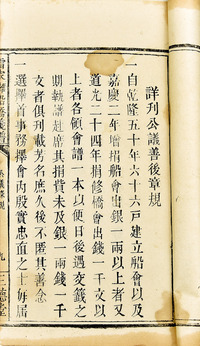 詳刊公議善後章規
一自乾隆五十年六十六戶建立船會以及
嘉慶二年增捐船會出銀一兩以上者又
道光二十四年捐修橋會出錢一千文以
上者各領會譜一本以便日後交籤之
期執譜赴席其捐費未及銀一兩錢一千
文者俱刊載芳名庶久後不匿其善念
一選擇首事務擇會內殷實忠直之士每屆